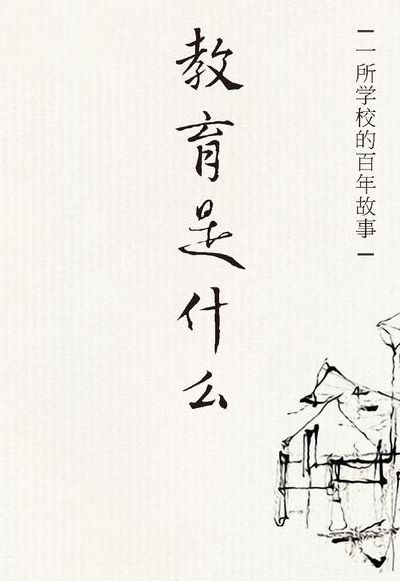 一所学校的百年故事
教育是什么